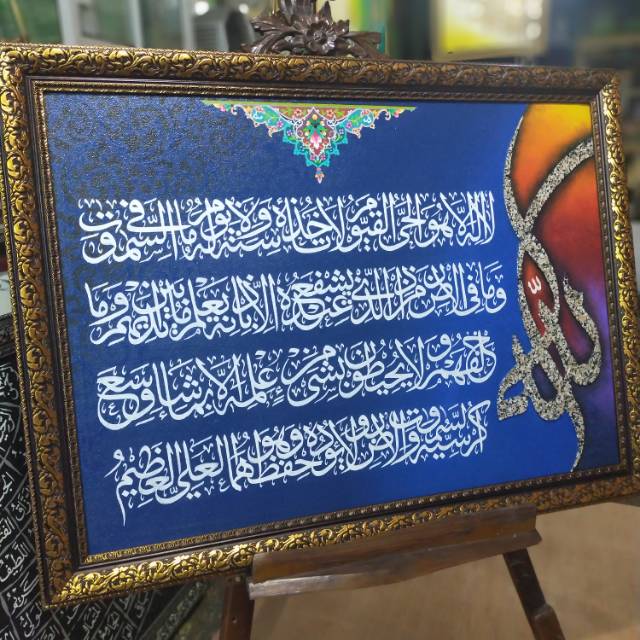 لا اله الا هو الحي القيوم لا تاخذه سنة ولا نوم له ما في السموت
وما في الارض من ذا الذي يشفع عنده الا باذنه يعلم ما بين ايديهم وما
خلفهم ولا يحيطون بشيء من علمه الا بما شاء وسع
كرسيه السموت والارض ولا يؤده حفظهما وهو العلي العظيم
الله
اللطيف